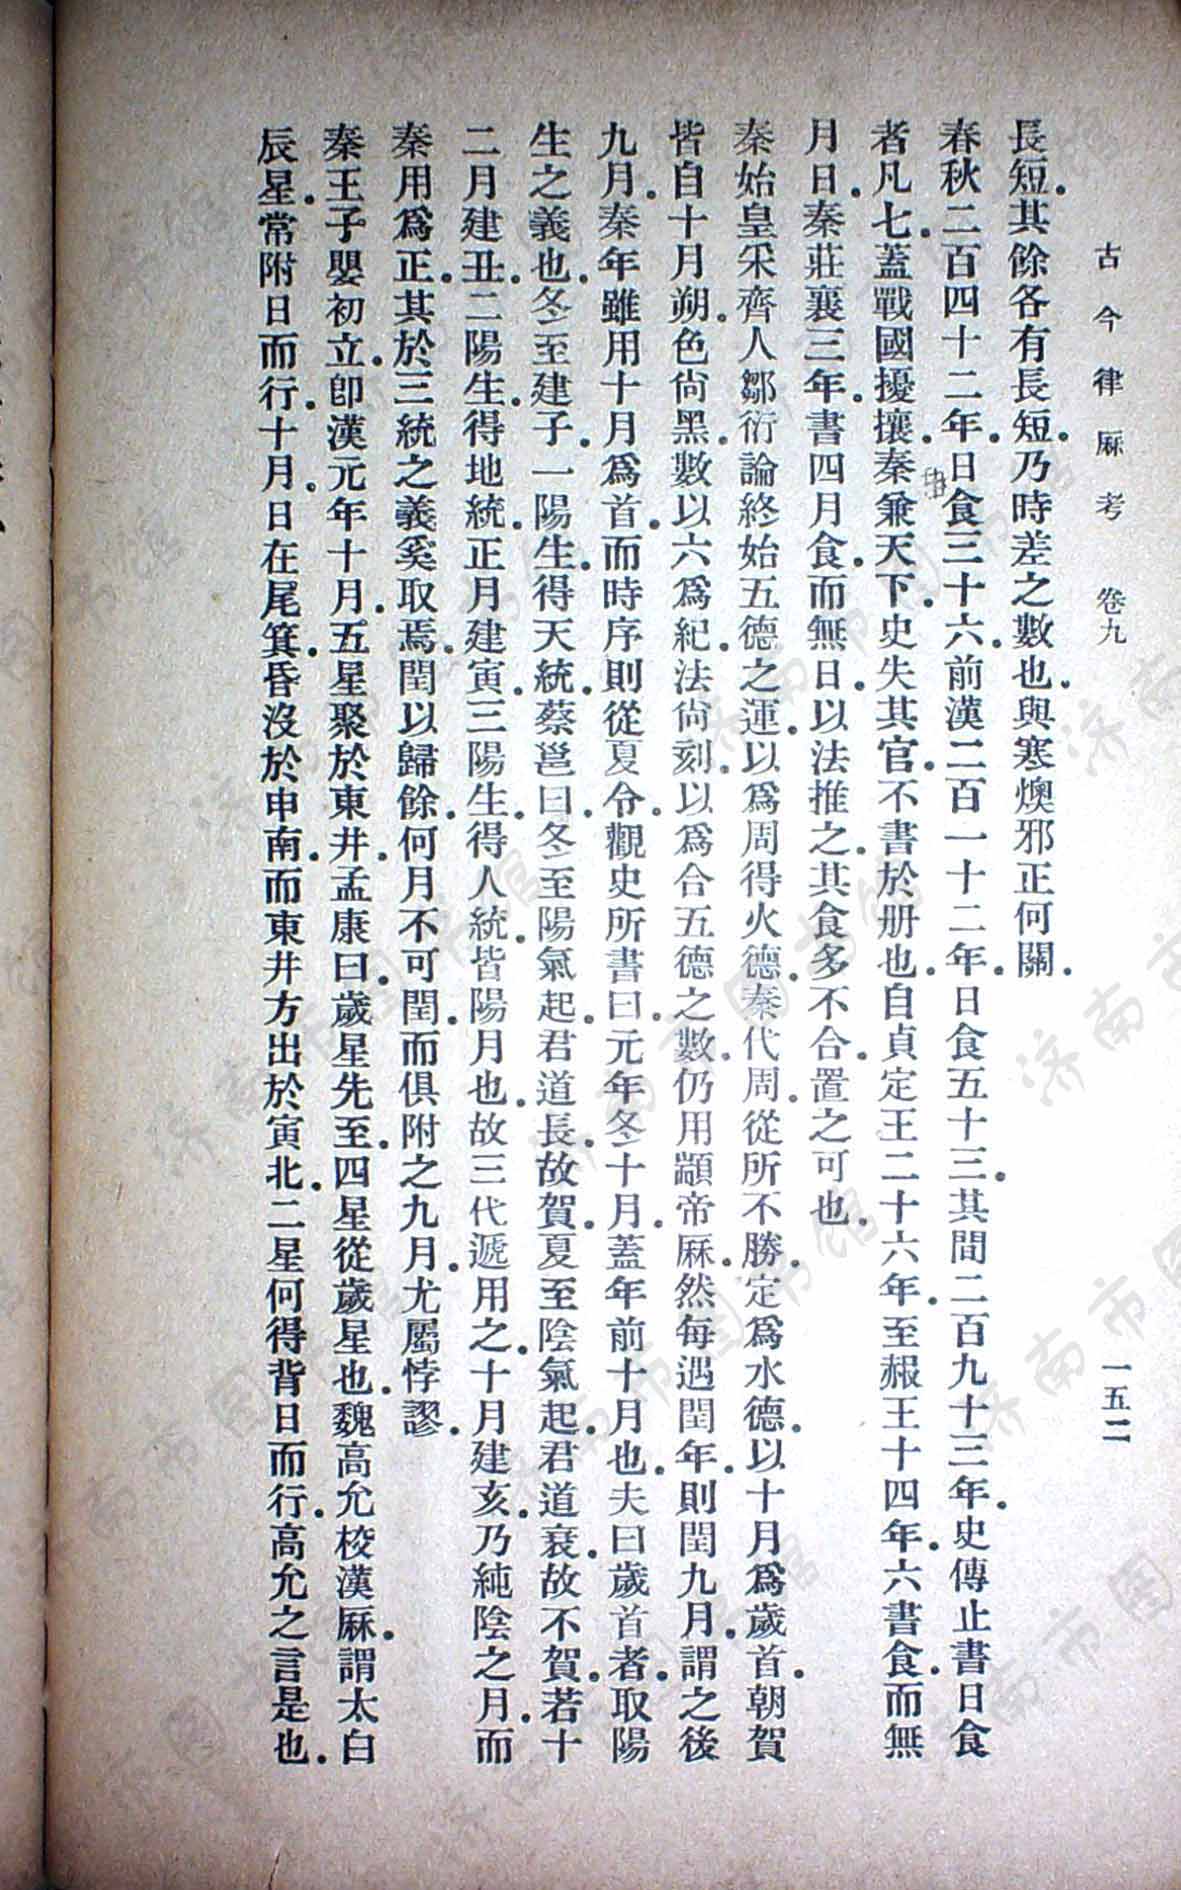 古今律厤考 卷九 一五二
長短.其餘各有長短.乃時差之數也.與寒燠邪正何關.
春秋二百四十二年.日食三十六.前漢二百一十二年.日食五十三.其間二百九十三年.史傳止書日食
者凡七.蓋戰國擾攘.秦兼天下.史失其官.不書於册也.自貞定王二十六年.至赧王十四年.六書食.而無
月日.秦莊襄三年.書四月食.而無日.以法推之.其食多不合.置之可也.
秦始皇采齊人鄒衍論終始五德之運.以爲周得火德.秦代周.從所不勝.定爲水德.以十月爲歲首.朝賀
皆自十月朔.色尙黑.數以六爲紀.法尙刻.以爲合五德之數.仍用顓帝厤.然每遇閏年.則閏九月.謂之後
九月.秦年雖用十月爲首.而時序則從夏令.觀史所書曰.元年冬十月.蓋年前十月也.夫曰歲首者.取陽
生之義也.冬至建子.一陽生.得天統.蔡邕曰.冬至陽氣起.君道長.故賀.夏至陰氣起.君道衰.故不賀.若十
二月建丑.二陽生.得地統.正月建寅.三陽生.得人統.皆陽月也.故三代遞用之.十月建亥.乃純陰之月.而
秦用爲正.其於三統之義奚取焉.閏以歸餘.何月不可閏.而俱附之九月.尤屬悖謬.
秦王子嬰初立.卽漢元年十月.五星聚於東井.孟康曰.歲星先至.四星從歲星也.魏高允校漢厤.謂太白
辰星.常附日而行.十月.日在尾箕.昏沒於申南.而東井方出於寅北.二星何得背日而行.高允之言是也.